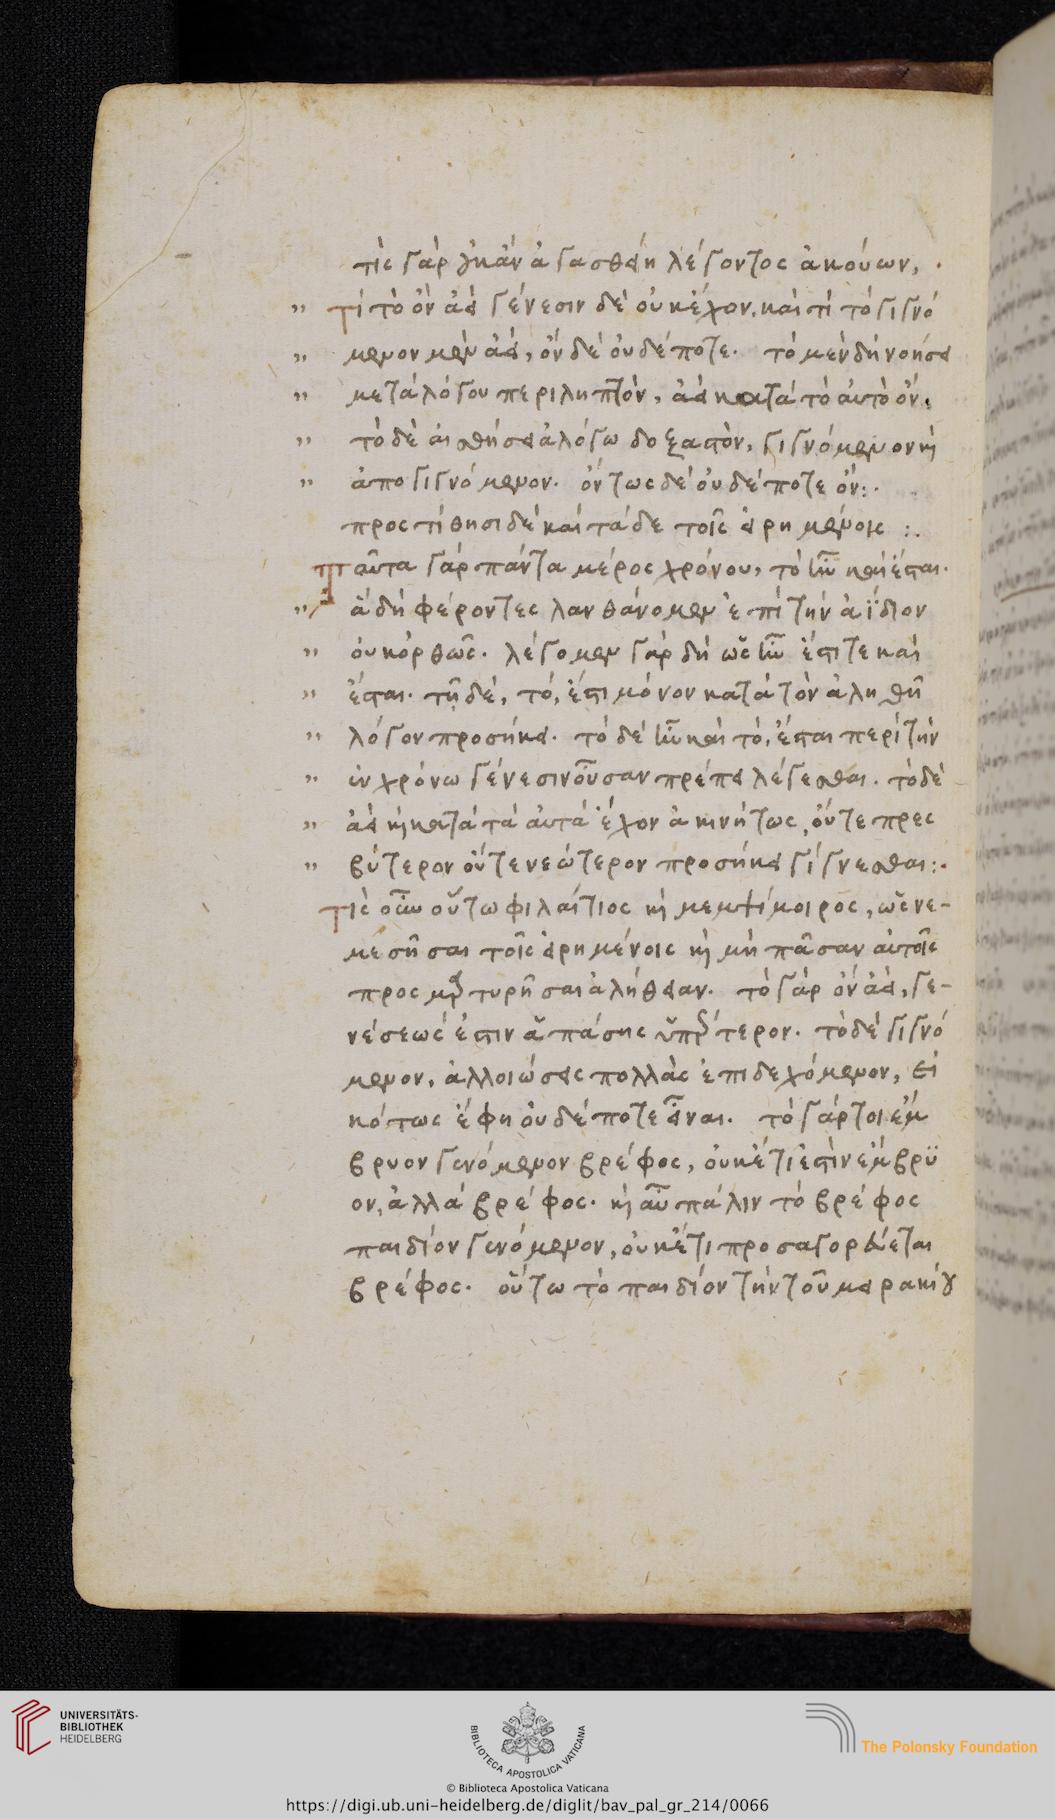 τίς γὰρ οὐκ ἂν ἀγασθείη λέγοντος ἀκούων,
τί τὸ ὂν ἀεὶ γένεσιν δὲ οὐκ ἔχον, καὶ τί τὸ γιγνό
μενον μὲν ἀεί, ὂν δὲ οὐδέποτε. τὸ μὲν δὴ νοήσει
μετὰ λόγου περιληπτὸν, ἀεὶ κατὰ τὸ αὐτὸ ὄν.
τὸ δὲ αἰσθήσει ἀλόγω δοξαστὸν, γιγνόμενον κὶ
ἀπογιγνόμενον. ὄντως δὲ οὐδέποτε ὄν:.
προστίθησι δὲ καὶ τάδε τοῖς εἰρημένοις :.
Ταῦτα γὰρ πάντα μέρος χρόνου, τὸ ἦν καὶ ἔσται.
ἃ δὴ φέροντες λανθάνομεν ἐπὶ τὴν ἀΐδιον
οὐκ ὀρθῶς. λέγομεν γὰρ δὴ ὡς ἦν ἔστι τε καὶ
ἔσται. τῇ δὲ, τό, ἔστι μόνον κατὰ τὸν ἀληθῆ
λόγον προσήκει. τὸ δὲ ἦν καὶ τό, ἔσται περὶ τὴν
ἐν χρόνω γένεσιν οὖσαν πρέπει λέγεσθαι. τὸ δὲ
ἀεὶ κὶ κατὰ τὰ αὐτὰ ἔχον ἀκινήτως, οὔτε πρεσ
βύτερον οὔτε νεώτερον προσήκει γίγνεσθαι:.
Τίς οὖν οὕτω φιλαίτιος κὶ μεμψίμοιρος, ὡς νε-
μεσῆσαι τοῖς εἰρημένοις κὶ μὴ πᾶσαν αὐτοῖς
προσμαρτυρῆσαι ἀλήθειαν. τὸ γὰρ ὂν ἀεί, γε-
νέσεώς ἐστιν ἁπάσης ὑπέρτερον. τὸ δὲ γιγνό
μενον, ἀλλοιώσεις πολλὰς ἐπιδεχόμενον, εἰ
κότως ἔφη οὐδέποτε εἶναι. τὸ γάρ τοι ἔμ
βρυον γενόμενον βρέφος, οὐκέτι ἐστὶν ἔμβρυ
ον, ἀλλὰ βρέφος. κὶ αὖ πάλιν τὸ βρέφος
παιδίον γενόμενον, οὐκέτι προσαγορεύεται
βρέφος. οὕτω τὸ παιδίον τὴν τοῦ μειρακίου
UNIVERSITÄTS-
BIBLIOTHEK
HEIDELBERG
BIBLIOTECA APOSTOLICA VATICANA
The Polonsky Foundation
© Biblioteca Apostolica Vaticana
https://digi.ub.uni-heidelberg.de/diglit/bav_pal_gr_214/0066